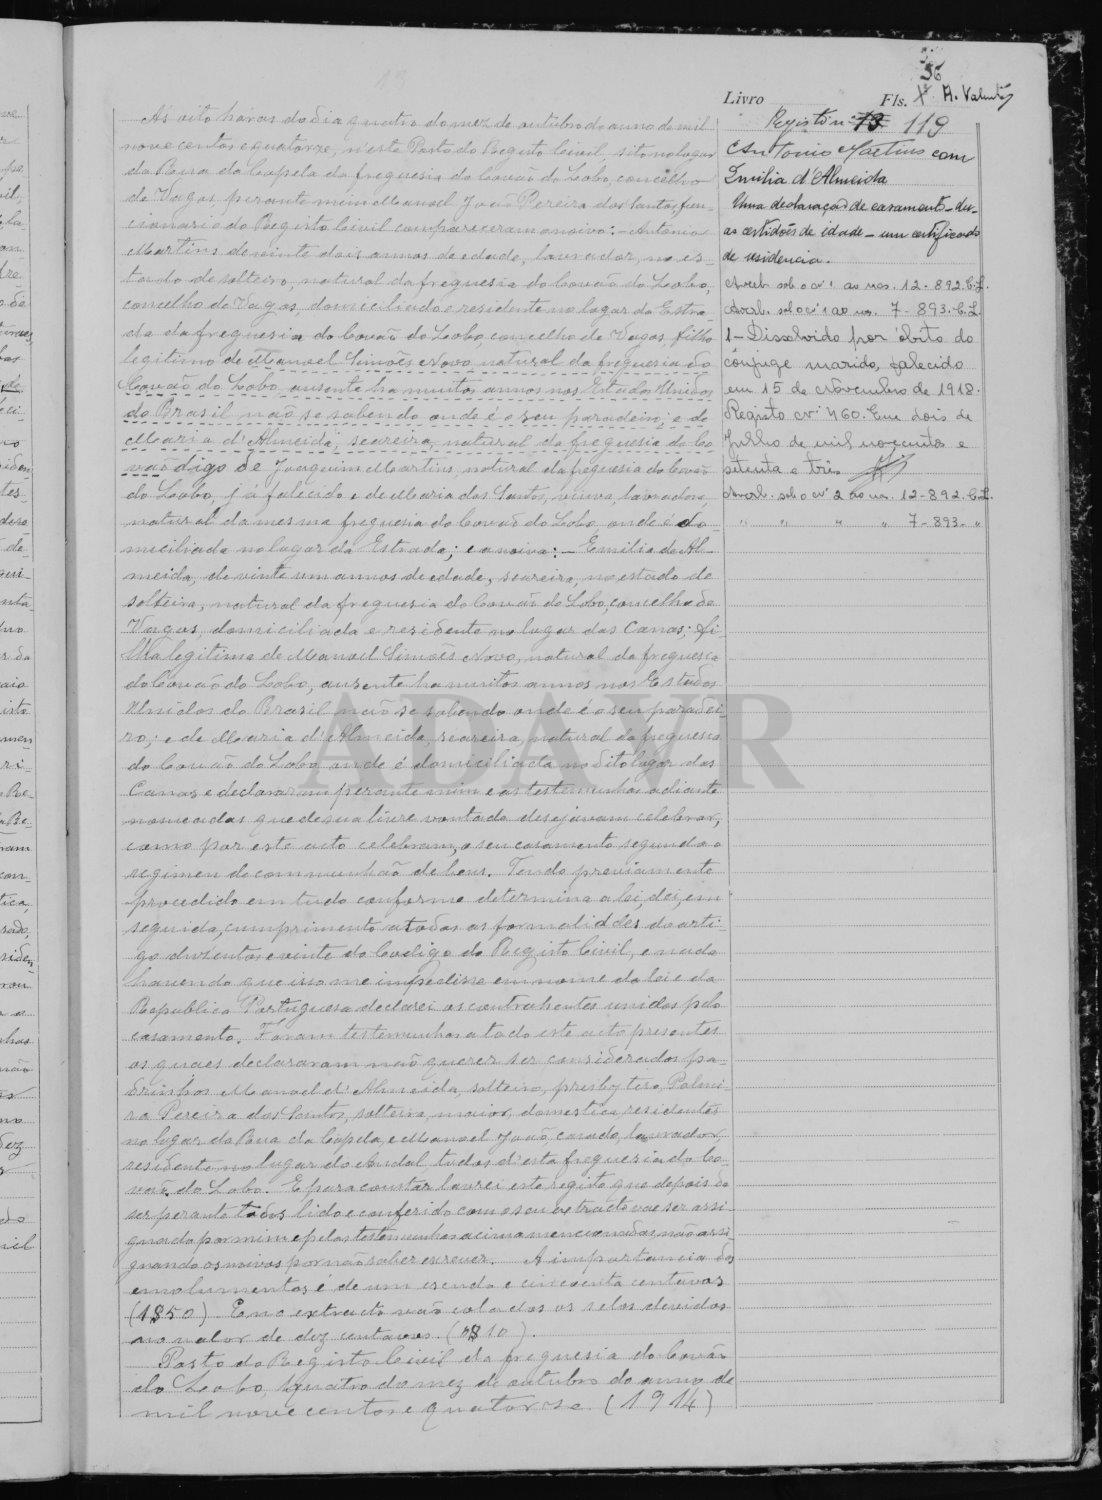 36
Livro Fls. X. A. Valente
Registo nº 73 119
Antonio Martins com
Emilia d'Almeida
Uma declaração de casamento - du-
as certidões de idade - um certificado
de residencia.
Averb. sob o nº 1 ao nos. 12-892. C.L.
Averb. sob o nº 1 ao no. 7-893. C.L.
1 - Dissolvido por óbito do
cônjuge marido, falecido
em 15 de Novembro de 1918.
Registo Nº 460. Em dois de
Julho de mil novecentos e
setenta e três.
Averb. sob o nº 2 ao no. 12-892. C.L.
" " " " 7-893- "
Ás oito horas do dia quatro do mez de outubro do anno de mil
nove centos e quatorze, n'este Posto do Registo Civil, sito no logar
da Rua da Capela da freguesia do Covão do Lobo, concelho
de Vagos, perante mim Manoel João Pereira dos Santos, fun-
cionario do Registo Civil compareceram o noivo: - Antonio
Martins de vinte dois annos de edade, lavrador, no es-
tado de solteiro, natural da freguesia do Covão do Lobo,
concelho de Vagos, domiciliado e residente no logar da Estra-
da da freguesia do Covão do Lobo concelho de Vagos, filho
legitimo de Manoel Simões Novo, natural da freguesia do
Covão do Lobo, ausente ha muitos annos nos Estados Unidos
do Brasil não se sabendo onde é o seu paradeiro; e de
Maria d'Almeida, seareira, natural da freguesia do Co-
vão digo de Joaquim Martins, natural da freguesia do Covão
do Lobo, já falecido e de Maria dos Santos, viuva, lavradora,
natural da mesma freguesia do Covão do Lobo, onde é do-
miciliada no logar da Estrada; e a noiva: - Emilia de Al-
meida, de vinte um annos de edade, seareira, no estado de
solteira, natural da freguesia do Covão do Lobo, concelho de
Vagos, domiciliada e residente no logar das Canas; fi-
lha legitima de Manoel Simões Novo, natural da freguesia
do Covão do Lobo, ausente ha muitos annos nos Estados
Unidos do Brasil não se sabendo onde é o seu paradei-
ro; e de Maria d'Almeida, seareira, natural da freguesia
do Covão do Lobo, onde é domiciliada no dito logar das
Canas e declararam perante mim e as testemunhas adiante
nomeadas que de sua livre vontade desejavam celebrar,
como por este acto celebram, o seu casamento segundo o
regimen de communhão de bens. Tendo previamente
procedido em tudo conforme determina a lei, dei, em
seguida, cumprimento a todas as formaliddes do arti-
go duzentos e vinte do Codigo do Registo Civil, e nada
havendo que isso me impedisse em nome da lei e da
Republica Portuguesa declarei os contrahentes unidos pelo
casamento. Foram testemunhas a todo este acto presentes
os quaes declararam não querer ser considerados pa-
drinhos Manoel d'Almeida, solteiro, presbytero, Palmi-
ra Pereira dos Santos, solteira, maior, domestica, residentes
no logar da Rua da Capela, e Manoel João, casado, lavrador,
residente no logar do Andal, todos d'esta freguesia do Co-
vão do Lobo. E para constar lavrei este registo que depois de
ser perante todos lido e conferido com o seu extracto vae ser assi-
gnado por mim e pelas testemunhas acima mencionadas não assi-
gnando os noivos por não saber escrever. A importancia dos
emolumentos é de um escudo e cincoenta centavos
(1$50). E no extracto vão colados os selos devidos
no valor de dez centavos. ($10).
Posto do Registo Civil da freguesia do Covão
do Lobo, quatro do mez de outubro do anno de
mil nove centos e quatorze. (1914)
ADAVR